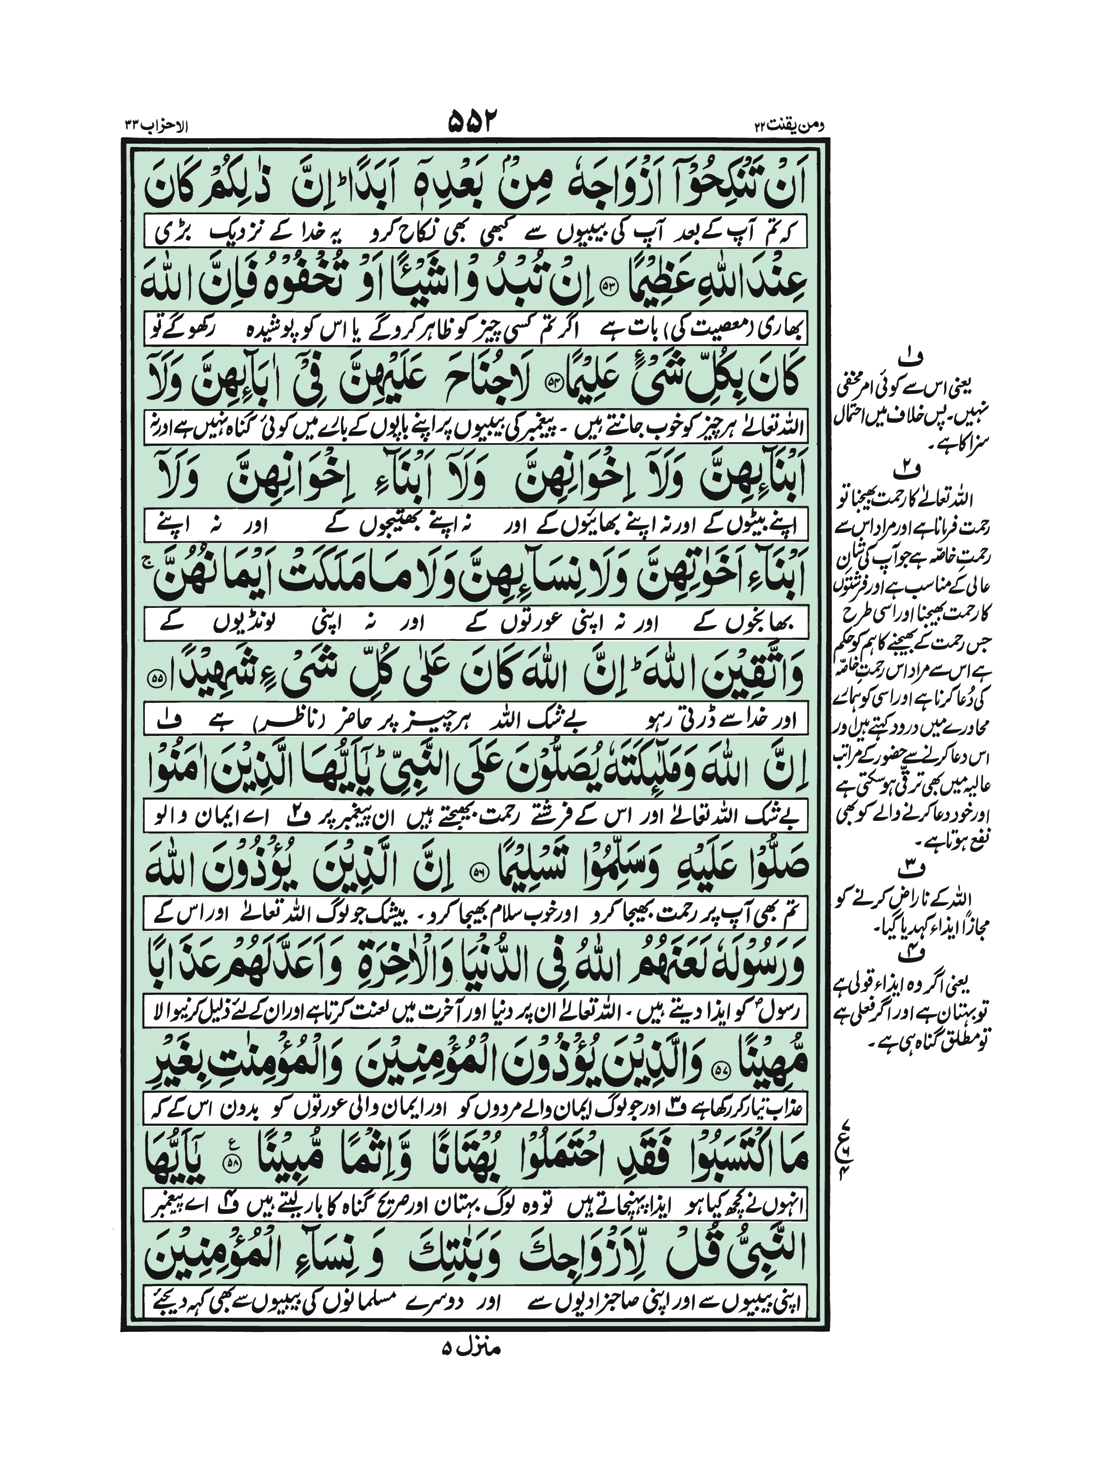 ومن یقنت ۲۲
۵۵۲
الاحزاب ۳۳
اَنْ تَنْكِحُوْۤا اَزْوَاجَهٗ مِنْۢ بَعْدِهٖۤ اَبَدًا ؕ اِنَّ ذٰلِكُمْ كَانَ
کہ تم آپ کے بعد آپ کی بیبیوں سے کبھی بھی نکاح کرو یہ خدا کے نزدیک بڑی
عِنْدَ اللّٰهِ عَظِيْمًا ﴿۵۳﴾ اِنْ تُبْدُوْا شَيْـًٔا اَوْ تُخْفُوْهُ فَاِنَّ اللّٰهَ
بھاری (معصیت کی) بات ہے اگر تم کسی چیز کو ظاہر کروگے یا اس کو پوشیدہ رکھوگے تو
كَانَ بِكُلِّ شَيْءٍ عَلِيْمًا ﴿۵۴﴾ لَا جُنَاحَ عَلَيْهِنَّ فِيْۤ اٰبَآئِهِنَّ وَلَاۤ
اللہ تعالےٰ ہر چیز کو خوب جانتے ہیں ۔ پیغمبر کی بیبیوں پر اپنے باپوں کے بارے میں کوئی گناہ نہیں ہے اور نہ
اَبْنَآئِهِنَّ وَلَاۤ اِخْوَانِهِنَّ وَلَاۤ اَبْنَآءِ اِخْوَانِهِنَّ وَلَاۤ
اپنے بیٹوں کے اور نہ اپنے بھائیوں کے اور نہ اپنے بھتیجوں کے اور نہ اپنے
اَبْنَآءِ اَخَوٰتِهِنَّ وَلَا نِسَآئِهِنَّ وَلَا مَا مَلَكَتْ اَيْمَانُهُنَّ ۚ
بھانجوں کے اور نہ اپنی عورتوں کے اور نہ اپنی لونڈیوں کے
وَاتَّقِيْنَ اللّٰهَ ؕ اِنَّ اللّٰهَ كَانَ عَلٰى كُلِّ شَيْءٍ شَهِيْدًا ﴿۵۵﴾
اور خدا سے ڈرتی رہو بے شک اللہ ہر چیز پر حاضر (ناظر) ہے ف۱
اِنَّ اللّٰهَ وَمَلٰٓئِكَتَهٗ يُصَلُّوْنَ عَلَى النَّبِيِّ ؕ يٰۤاَيُّهَا الَّذِيْنَ اٰمَنُوْا
بے شک اللہ تعالےٰ اور اس کے فرشتے رحمت بھیجتے ہیں ان پیغمبر پر ف۲ اے ایمان والو
صَلُّوْا عَلَيْهِ وَسَلِّمُوْا تَسْلِيْمًا ﴿۵۶﴾ اِنَّ الَّذِيْنَ يُؤْذُوْنَ اللّٰهَ
تم بھی آپ پر رحمت بھیجا کرو اور خوب سلام بھیجا کرو ۔ بیشک جو لوگ اللہ تعالےٰ اور اس کے
وَرَسُوْلَهٗ لَعَنَهُمُ اللّٰهُ فِي الدُّنْيَا وَالْاٰخِرَةِ وَاَعَدَّ لَهُمْ عَذَابًا
رسولؐ کو ایذا دیتے ہیں ۔ اللہ تعالےٰ ان پر دنیا اور آخرت میں لعنت کرتا ہے اور ان کے لئے ذلیل کرنیوالا
مُّهِيْنًا ﴿۵۷﴾ وَالَّذِيْنَ يُؤْذُوْنَ الْمُؤْمِنِيْنَ وَالْمُؤْمِنٰتِ بِغَيْرِ
عذاب تیار کر رکھا ہے ف۳ اور جو لوگ ایمان والے مردوں کو اور ایمان والی عورتوں کو بدون اس کے کہ
مَا اكْتَسَبُوْا فَقَدِ احْتَمَلُوْا بُهْتَانًا وَّاِثْمًا مُّبِيْنًا ﴿۵۸﴾ ع يٰۤاَيُّهَا
انہوں نے کچھ کیا ہو ایذا پہنچاتے ہیں تو وہ لوگ بہتان اور صریح گناہ کا بار لیتے ہیں ف۴ اے پیغمبر
النَّبِيُّ قُلْ لِّاَزْوَاجِكَ وَبَنٰتِكَ وَنِسَآءِ الْمُؤْمِنِيْنَ
اپنی بیبیوں سے اور اپنی صاحبزادیوں سے اور دوسرے مسلمانوں کی بیبیوں سے بھی کہہ دیجئے
منزل ۵
ف۱
یعنی اس سے کوئی امر مخفی
نہیں۔ پس خلاف میں احتمال
سزا کا ہے۔
ف۲
اللہ تعالےٰ کا رحمت بھیجنا تو
رحمت فرمانا ہے اور مراد اس سے
رحمت خاصّہ ہے جو آپ کی شان
عالی کے مناسب ہے اور فرشتوں
کا رحمت بھیجنا اور اسی طرح
جس رحمت کے بھیجنے کا ہم کو حکم
ہے اس سے مراد اس رحمت خاصّہ
کی دُعا کرنا ہے اور اسی کو ہمارے
محاورے میں درود کہتے ہیں اور
اس دعا کرنے سے حضور کے مراتب
عالیہ میں بھی ترقی ہو سکتی ہے
اور خود دعا کرنے والے کو بھی
نفع ہوتا ہے۔
ف۳
اللہ کے ناراض کرنے کو
مجازًا ایذاء کہدیا گیا۔
ف۴
یعنی اگر وہ ایذاء قولی ہے
تو بہتان ہے اور اگر فعلی ہے
تو مطلق گناہ ہی ہے۔
۷
ع ۶
۴